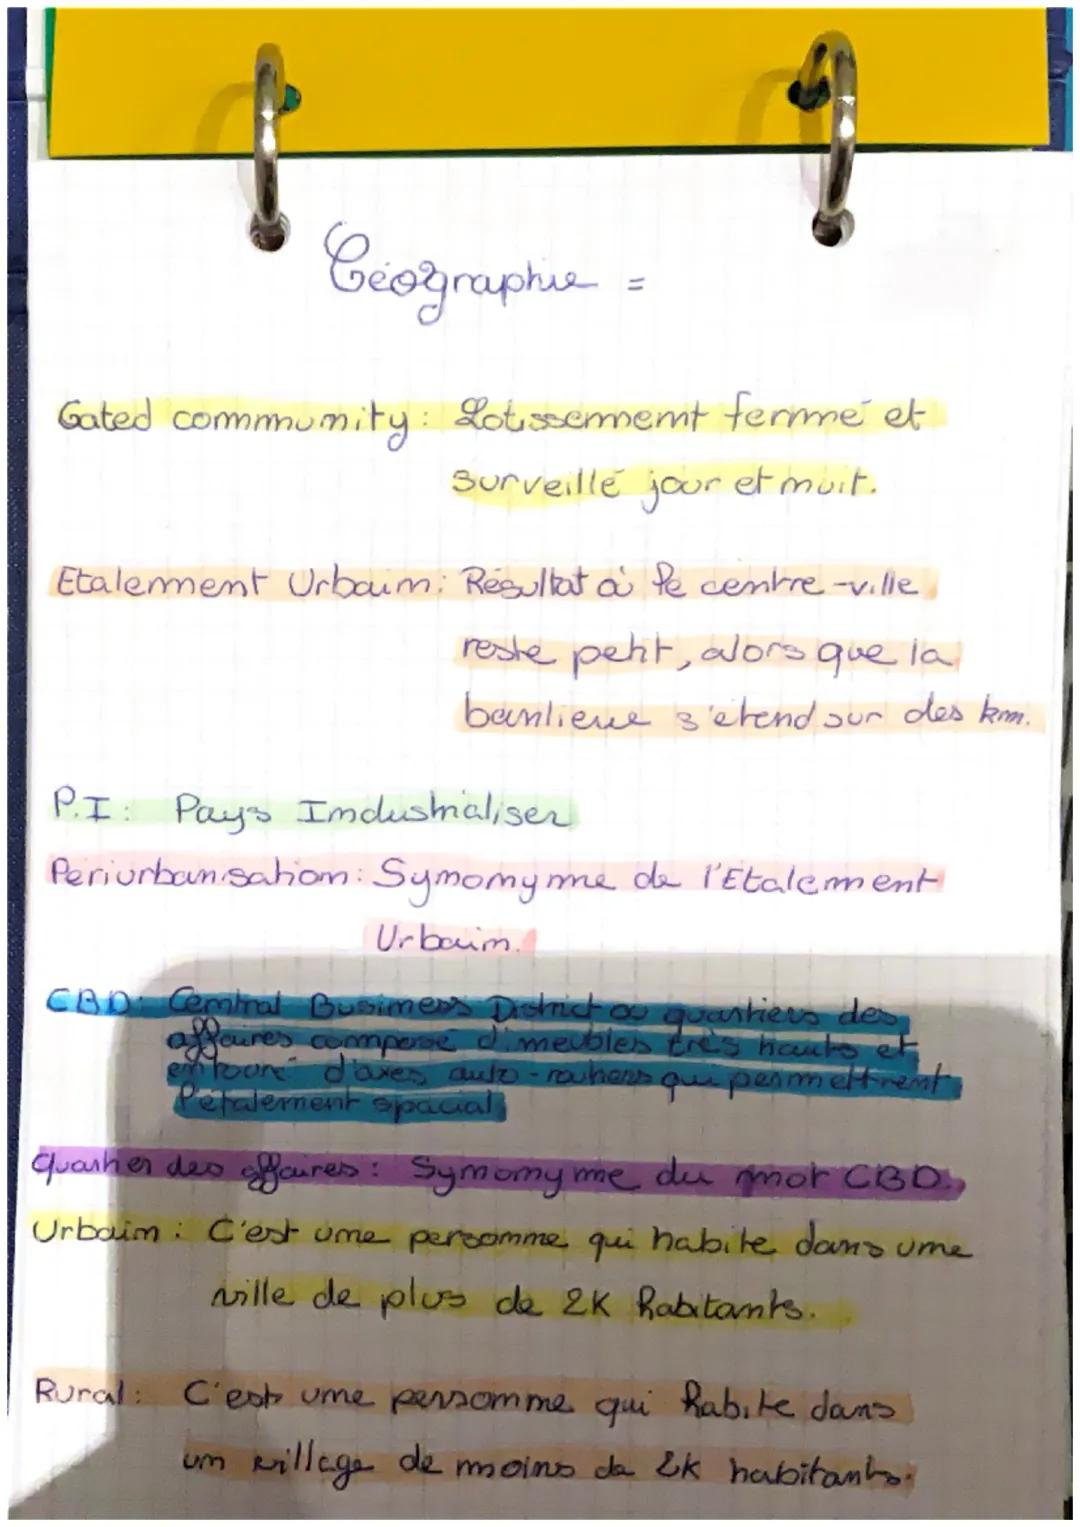 Géographie =
Gated community : Lotissement fermé et
surveillé jour et nuit.
Etalement Urbain : Résultat où le centre-ville
reste petit, alors que la
banlieue s'étend sur des km.
P.I : Pays Industrialiser
Periurbanisation : Synonyme de l'Etalement
Urbain.
CBD : Central Business District ou quartiers des
affaires composé d'imeubles très hauts et
entouré d'axes auto-routiers qui permettrent
l'étalement spacial
Quartier des affaires : Synonyme du mot CBD.
Urbain : C'est une personne qui habite dans une
ville de plus de 2K habitants.
Rural : C'est une personne qui habite dans
un village de moins de 2K habitants.